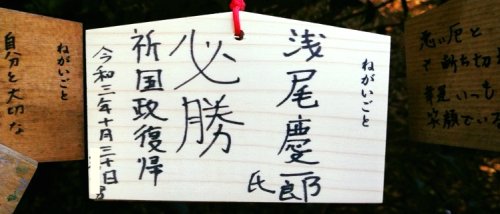 悪い厄と
断ち切
いつも
笑顔でいる
ねがいごと
浅尾慶一郎
氏
必勝
祈国政復帰
令和三年十月三十日
ねがいごと
自分と大切な